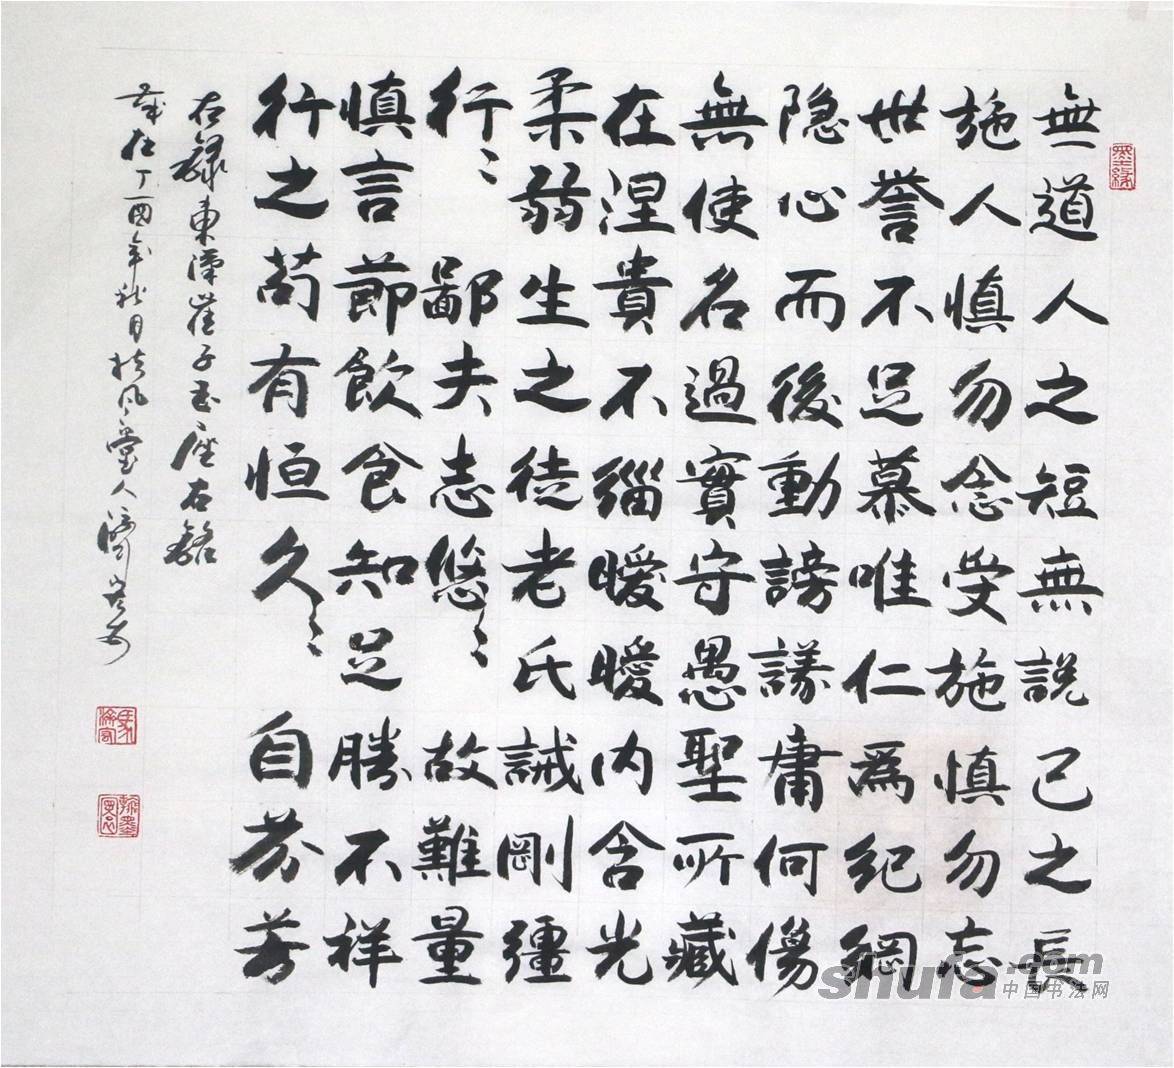 墨缘
無道人之短無說己之長
施人慎勿念受施慎勿忘
世譽不足慕唯仁爲紀綱
隐心而後動謗議庸何傷
無使名過實守愚聖所藏
在涅貴不緇曖曖内含光
柔弱生之徒老氏誡剛彊
行〻鄙夫志悠〻故難量
慎言節飲食知足勝不祥
行之苟有恒久〻自芬芳
右録東漢崔子玉座右銘
歲在丁酉年秋月扶風堂人
shufa.com
中国书法网